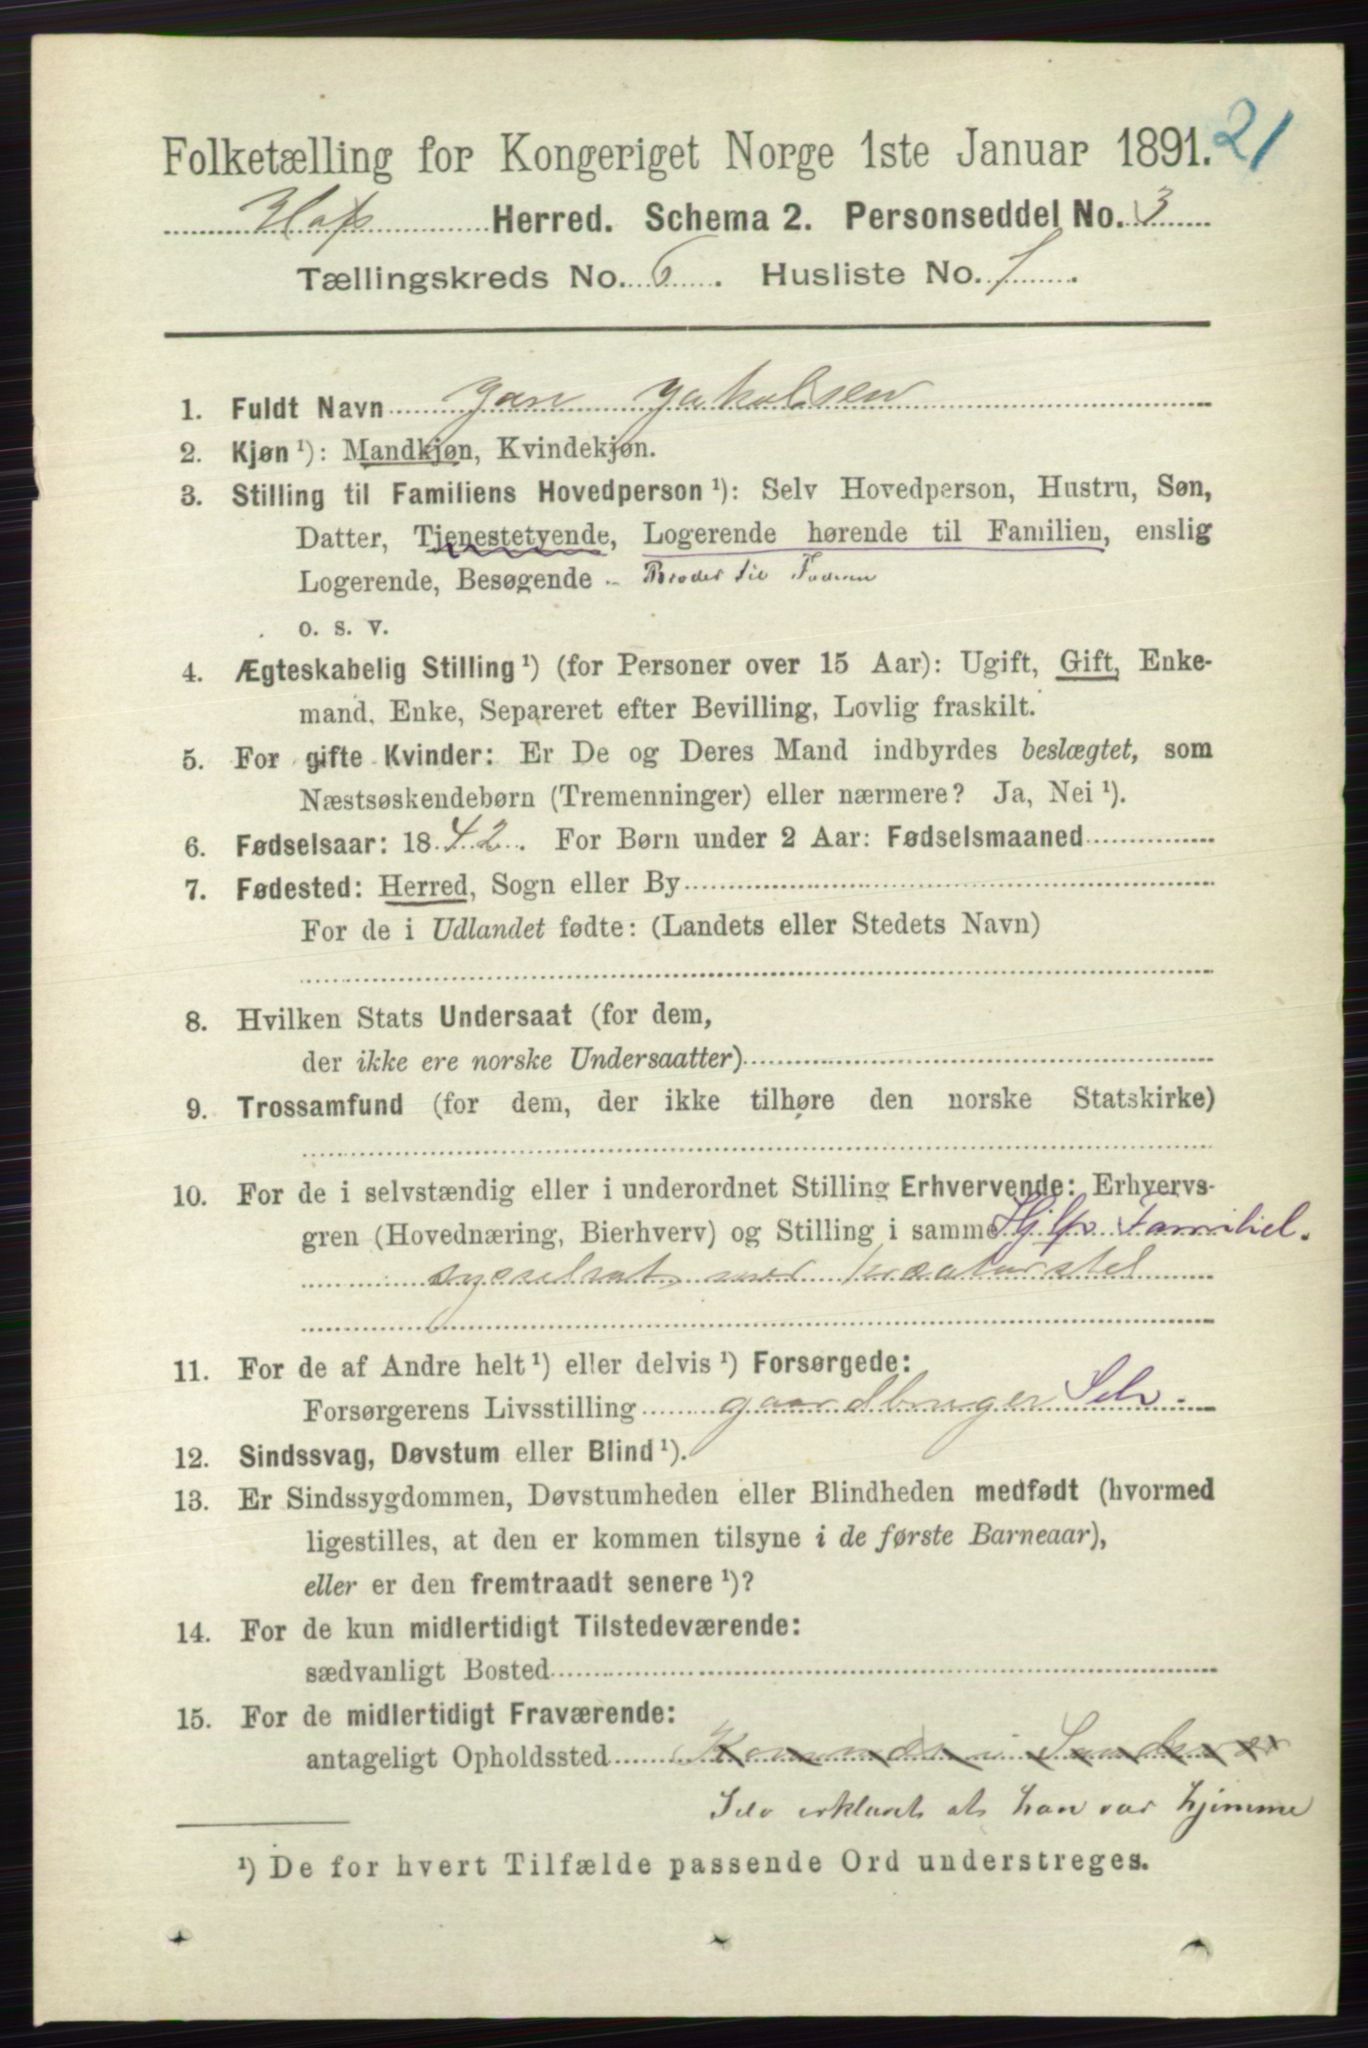 21
Folketælling for Kongeriget Norge 1ste Januar 1891.
Herred. Schema 2. Personseddel No. 3
Tællingskreds No. 6. Husliste No. 1.
1. Fuldt Navn Jan Jakobsen
2. Kjøn ¹): Mandkjøn, Kvindekjøn.
3. Stilling til Familiens Hovedperson ¹): Selv Hovedperson, Hustru, Søn,
Datter, Tjenestetyende, Logerende hørende til Familien, enslig
Logerende, Besøgende Broder til
o. s. v.
4. Ægteskabelig Stilling ¹) (for Personer over 15 Aar): Ugift, Gift, Enke-
mand, Enke, Separeret efter Bevilling, Lovlig fraskilt.
5. For gifte Kvinder: Er De og Deres Mand indbyrdes beslægtet, som
Næstsøskendebørn (Tremenninger) eller nærmere? Ja, Nei ¹).
6. Fødselsaar: 1842. For Børn under 2 Aar: Fødselsmaaned
7. Fødested: Herred, Sogn eller By
For de i Udlandet fødte: (Landets eller Stedets Navn)
8. Hvilken Stats Undersaat (for dem,
der ikke ere norske Undersaatter)
9. Trossamfund (for dem, der ikke tilhøre den norske Statskirke)
10. For de i selvstændig eller i underordnet Stilling Erhvervende: Erhvervs-
gren (Hovednæring, Bierhverv) og Stilling i samme Hjelper Familiel.
sysselsat med kreaturstel
11. For de af Andre helt ¹) eller delvis ¹) Forsørgede:
Forsørgerens Livsstilling gaardbruger Selv.
12. Sindssvag, Døvstum eller Blind ¹).
13. Er Sindssygdommen, Døvstumheden eller Blindheden medfødt (hvormed
ligestilles, at den er kommen tilsyne i de første Barneaar),
eller er den fremtraadt senere ¹)?
14. For de kun midlertidigt Tilstedeværende:
sædvanligt Bosted
15. For de midlertidigt Fraværende:
antageligt Opholdssted
Selv erklært at han var hjemme
¹) De for hvert Tilfælde passende Ord understreges.